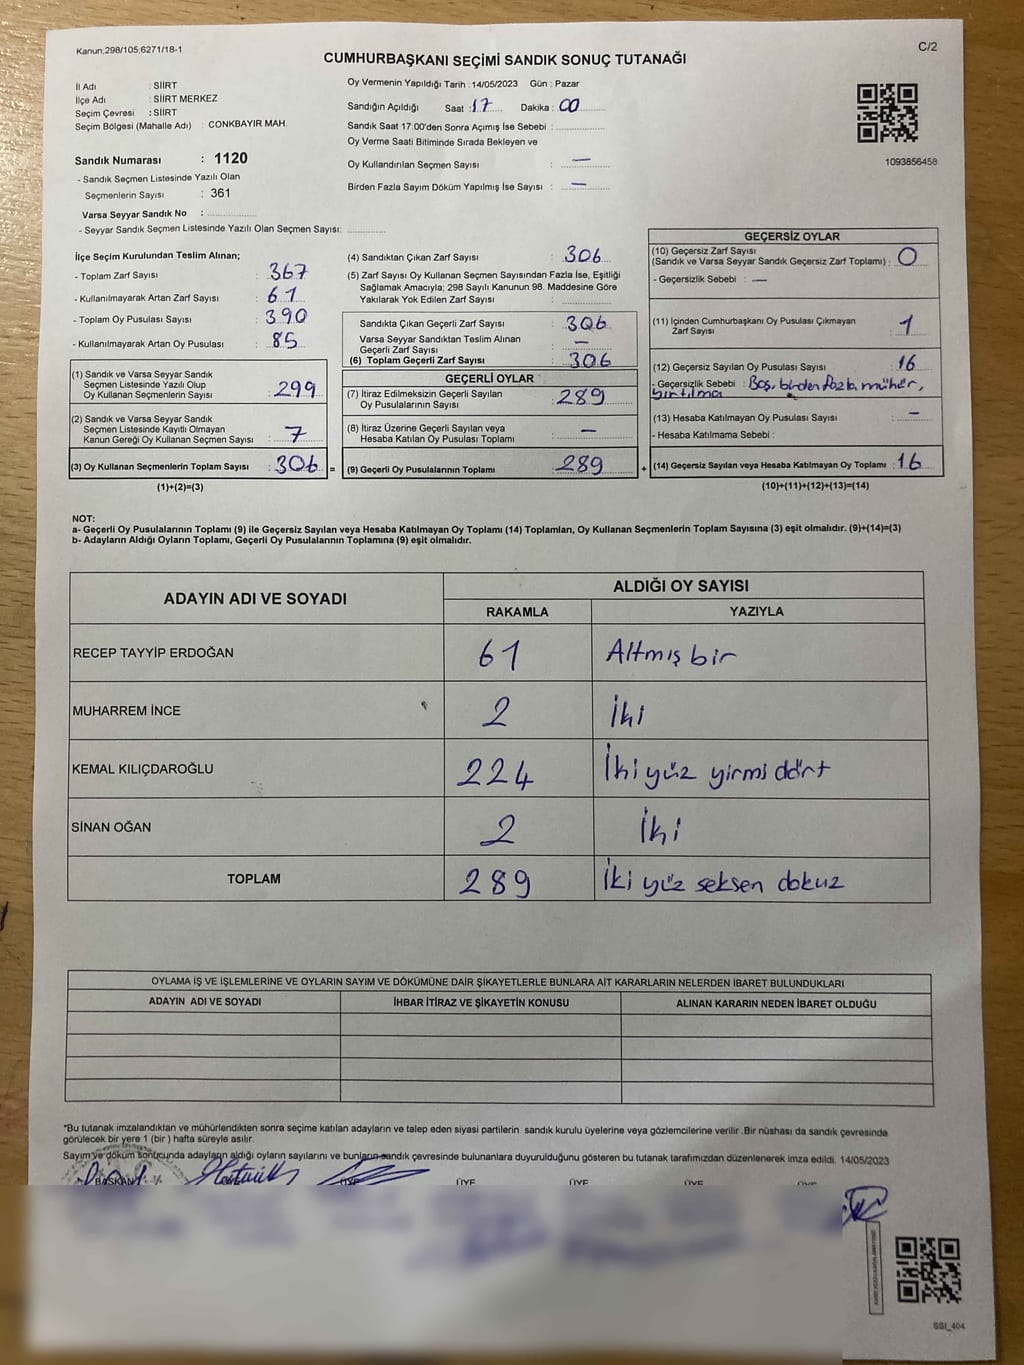 Kanun;298/105;6271/18-1
C/2
CUMHURBAŞKANI SEÇİMİ SANDIK SONUÇ TUTANAĞI
İl Adı : SİİRT
İlçe Adı : SİİRT MERKEZ
Seçim Çevresi : SİİRT
Seçim Bölgesi (Mahalle Adı) : CONKBAYIR MAH.
Sandık Numarası : 1120
- Sandık Seçmen Listesinde Yazılı Olan
Seçmenlerin Sayısı : 361
Varsa Seyyar Sandık No :
- Seyyar Sandık Seçmen Listesinde Yazılı Olan Seçmen Sayısı:
Oy Vermenin Yapıldığı Tarih :14/05/2023 Gün : Pazar
Sandığın Açıldığı Saat :17 Dakika : 00
Sandık Saat 17:00'den Sonra Açımış İse Sebebi :
Oy Verme Saati Bitiminde Sırada Bekleyen ve
Oy Kullandırılan Seçmen Sayısı : —
Birden Fazla Sayım Döküm Yapılmış İse Sayısı : —
1093856458
İlçe Seçim Kurulundan Teslim Alınan;
- Toplam Zarf Sayısı : 367
- Kullanılmayarak Artan Zarf Sayısı : 61
- Toplam Oy Pusulası Sayısı : 390
- Kullanılmayarak Artan Oy Pusulası : 85
(1) Sandık ve Varsa Seyyar Sandık
Seçmen Listesinde Yazılı Olup
Oy Kullanan Seçmenlerin Sayısı : 299
(2) Sandık ve Varsa Seyyar Sandık
Seçmen Listesinde Kayıtlı Olmayan
Kanun Gereği Oy Kullanan Seçmen Sayısı : 7
(3) Oy Kullanan Seçmenlerin Toplam Sayısı : 306 =
(1)+(2)=(3)
(4) Sandıktan Çıkan Zarf Sayısı : 306
(5) Zarf Sayısı Oy Kullanan Seçmen Sayısından Fazla İse, Eşitliği
Sağlamak Amacıyla; 298 Sayılı Kanunun 98. Maddesine Göre
Yakılarak Yok Edilen Zarf Sayısı :
Sandıkta Çıkan Geçerli Zarf Sayısı : 306
Varsa Seyyar Sandıktan Teslim Alınan
Geçerli Zarf Sayısı : —
(6) Toplam Geçerli Zarf Sayısı : 306
GEÇERLİ OYLAR
(7) İtiraz Edilmeksizin Geçerli Sayılan
Oy Pusulalarının Sayısı : 289
(8) İtiraz Üzerine Geçerli Sayılan veya
Hesaba Katılan Oy Pusulası Toplamı : —
(9) Geçerli Oy Pusulalarının Toplamı : 289 +
GEÇERSİZ OYLAR
(10) Geçersiz Zarf Sayısı
(Sandık ve Varsa Seyyar Sandık Geçersiz Zarf Toplamı) : 0
- Geçersizlik Sebebi : —
(11) İçinden Cumhurbaşkanı Oy Pusulası Çıkmayan
Zarf Sayısı : 1
(12) Geçersiz Sayılan Oy Pusulası Sayısı : 16
- Geçersizlik Sebebi : Boş, birden fazla mühür,
yırtılma
(13) Hesaba Katılmayan Oy Pusulası Sayısı : —
- Hesaba Katılmama Sebebi :
(14) Geçersiz Sayılan veya Hesaba Katılmayan Oy Toplamı : 16
(10)+(11)+(12)+(13)=(14)
NOT:
a- Geçerli Oy Pusulalarının Toplamı (9) ile Geçersiz Sayılan veya Hesaba Katılmayan Oy Toplamı (14) Toplamları, Oy Kullanan Seçmenlerin Toplam Sayısına (3) eşit olmalıdır. (9)+(14)=(3)
b- Adayların Aldığı Oyların Toplamı, Geçerli Oy Pusulalarının Toplamına (9) eşit olmalıdır.
ADAYIN ADI VE SOYADI ALDIĞI OY SAYISI
RAKAMLA YAZIYLA
RECEP TAYYİP ERDOĞAN 61 Altmış bir
MUHARREM İNCE 2 İki
KEMAL KILIÇDAROĞLU 224 İki yüz yirmi dört
SİNAN OĞAN 2 İki
TOPLAM 289 İki yüz seksen dokuz
OYLAMA İŞ VE İŞLEMLERİNE VE OYLARIN SAYIM VE DÖKÜMÜNE DAİR ŞİKAYETLERLE BUNLARA AİT KARARLARIN NELERDEN İBARET BULUNDUKLARI
ADAYIN ADI VE SOYADI İHBAR İTİRAZ VE ŞİKAYETİN KONUSU ALINAN KARARIN NEDEN İBARET OLDUĞU
*Bu tutanak imzalandıktan ve mühürlendikten sonra seçime katılan adayların ve talep eden siyasi partilerin sandık kurulu üyelerine veya gözlemcilerine verilir .Bir nüshası da sandık çevresinde
görülecek bir yere 1 (bir ) hafta süreyle asılır.
Sayım ve döküm sonucunda adayların aldığı oyların sayılarını ve bunların sandık çevresinde bulunanlara duyurulduğunu gösteren bu tutanak tarafımızdan düzenlenerek imza edildi. 14/05/2023
BAŞKAN ÜYE ÜYE ÜYE ÜYE
SSI_404